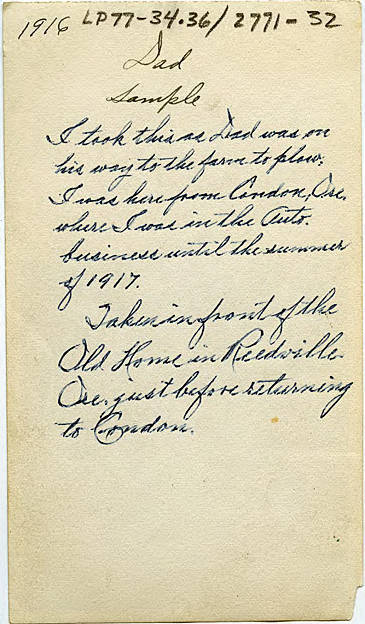 1916 LP77-34.36/2771-32
Dad
Sample
I took this as Dad was on
his way to the farm to plow;
I was here from Condon, Ore.
where I was in the Auto.
business until the summer
of 1917.
Taken in front of the
Old Home in Reedville
Ore. just before returning
to Condon.